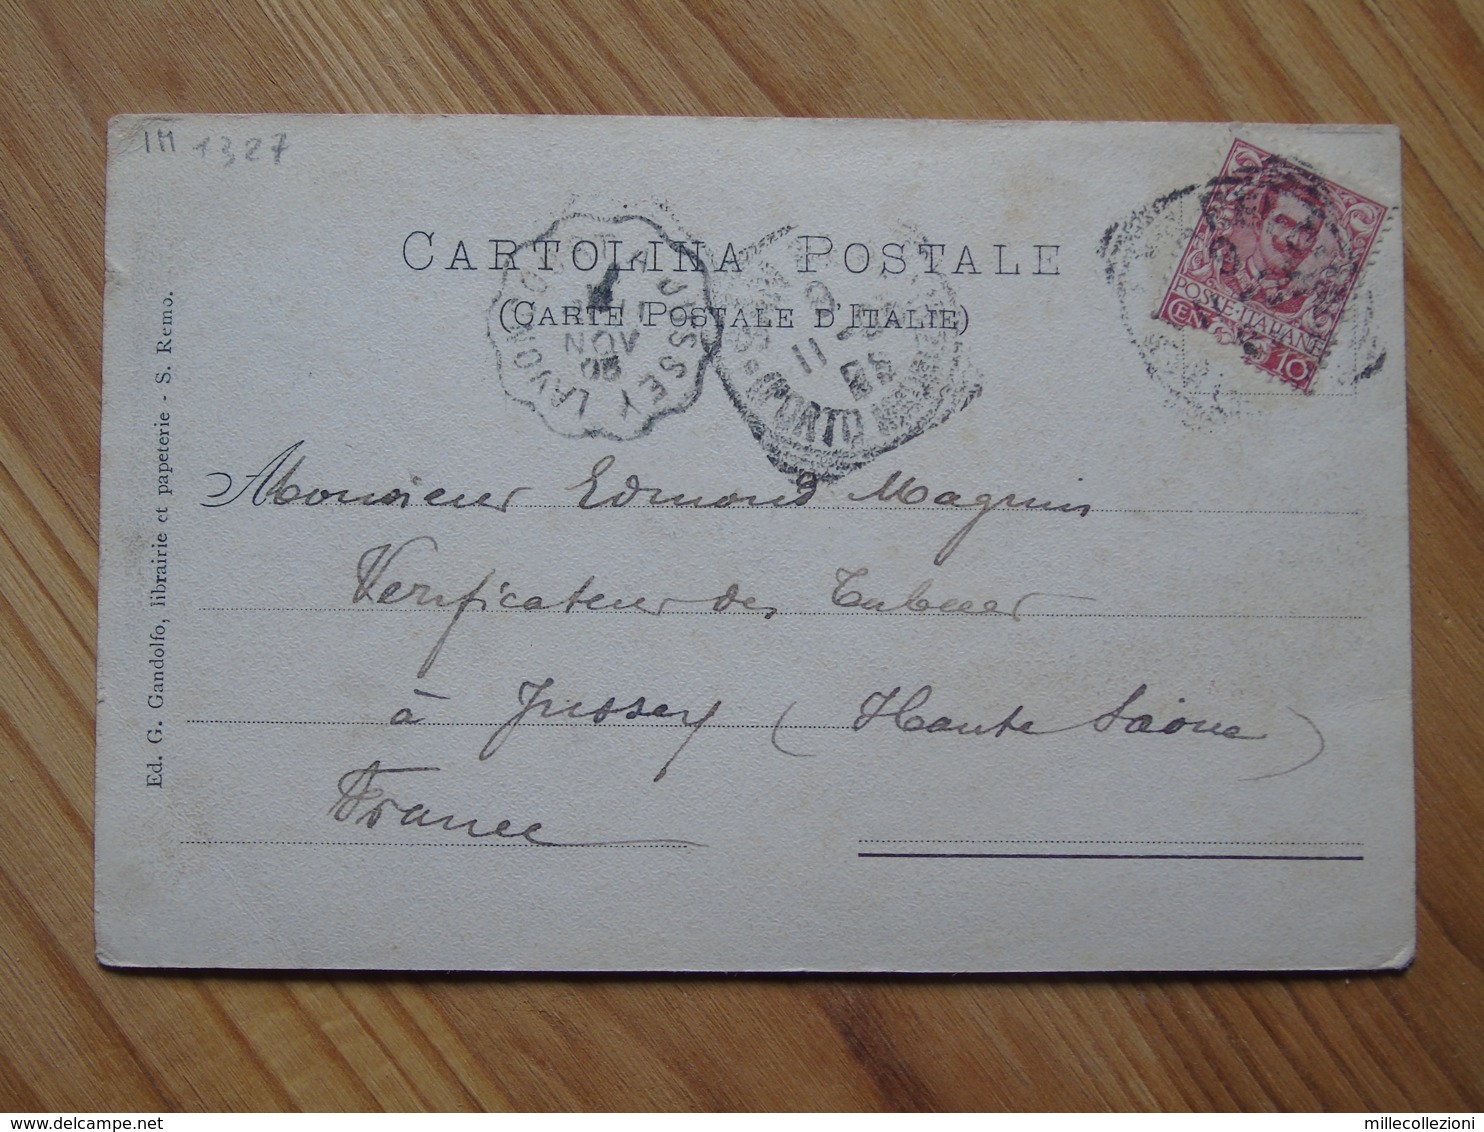 IM 1327
CARTOLINA POSTALE
(CARTE POSTALE D'ITALIE)
JUSSEY
NOV
05
11
PORTO MAURIZIO
POSTE·ITALIANE
CENT. 10
Monsieur Edmond Magnin
Verificateur des Tabacs
à Jussey (Haute Saône)
France
Ed. G. Gandolfo, librairie et papeterie - S. Remo.
delcampe.net
millecollezioni